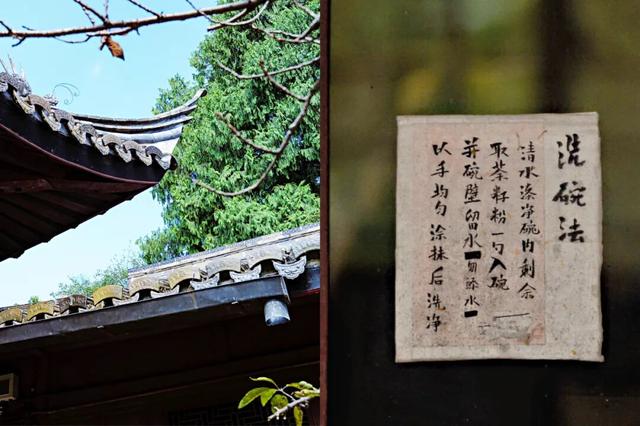 洗碗法
清水涤净碗内剩余
取茶籽粉一勺入碗
并碗壁留水勿添水
以手均匀涂抹后洗净